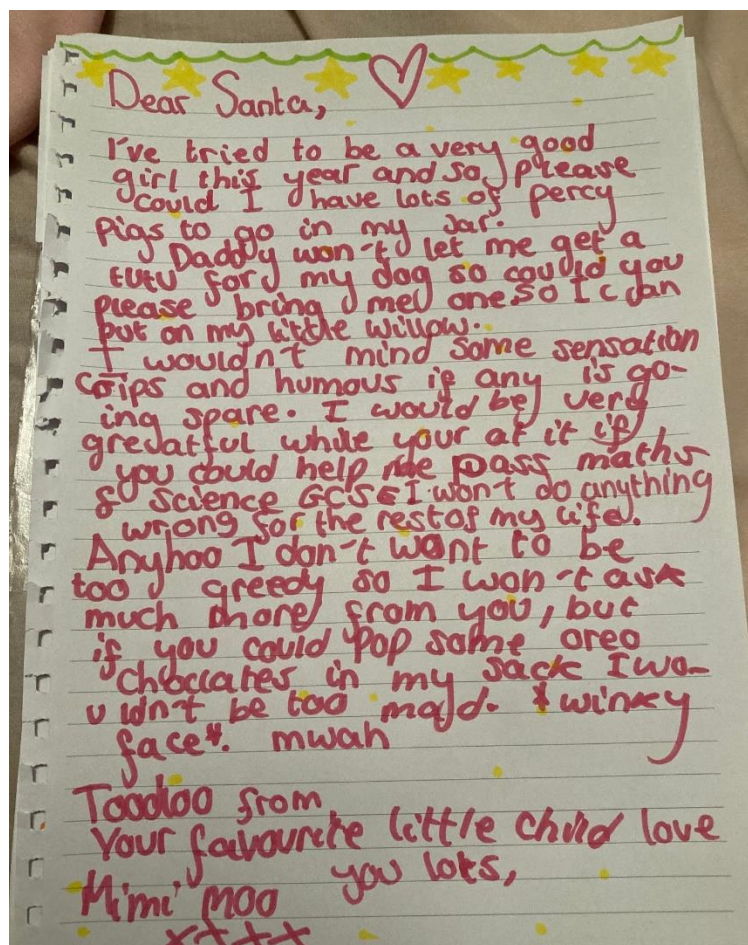 Dear Santa,
I've tried to be a very good
girl this year and so, please
could I have lots of percy
pigs to go in my Jar.
Daddy won't let me get a
tutu for my dog so could you
please bring me one so I can
put on my little willow.
I wouldn't mind some sensation
crips and humous if any is go-
ing spare. I would be very
gredatful while your at it if
you could help me pass maths
& science GCSE I won't do anything
wrong for the rest of my life.
Anyhoo I don't want to be
too greedy so I won't ask
much more from you, but
if you could pop some oreo
choccates in my sack I wo-
uldn't be too mad. *winky
face*. mwah
Toodloo from
Your favourite little child love
you lots,
Mimi Moo
xxxx